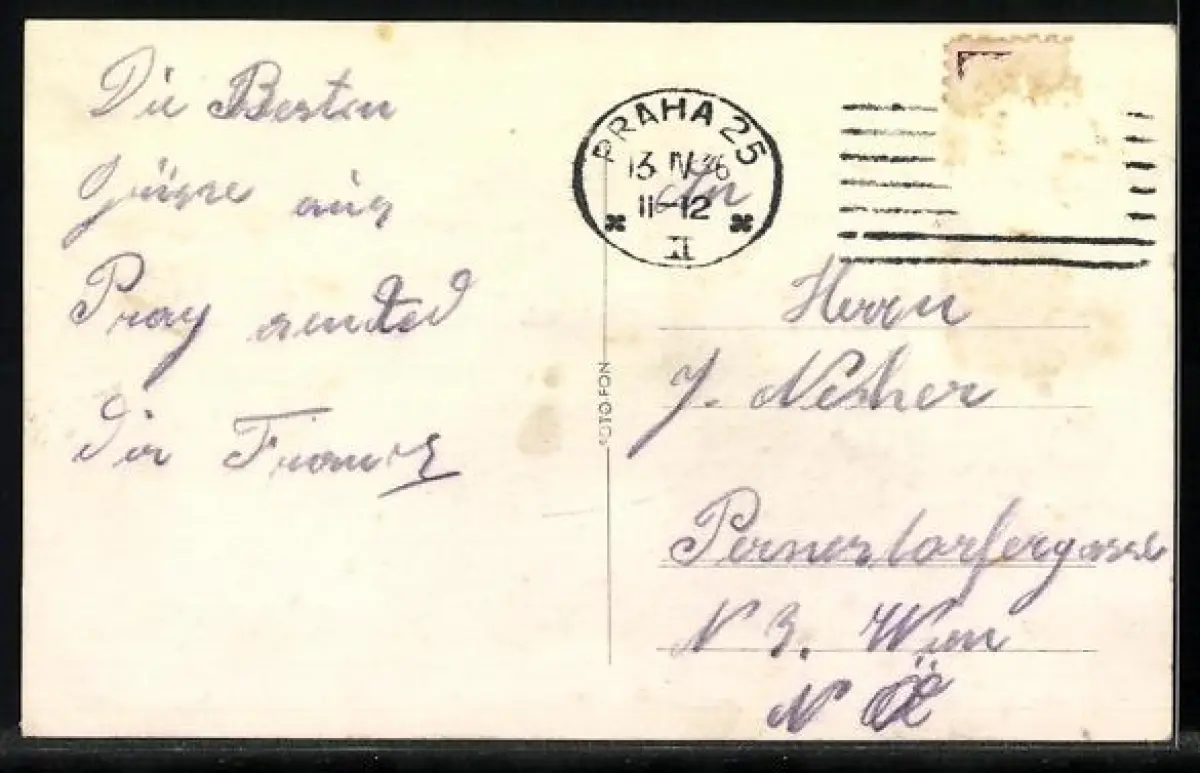 Die Besten
Grüsse aus
Prag sendet
dir Franz
PRAHA 25
13 IV 36
11-12
II
An
Herrn
J.
FOTO-FON
Pernerstorfergasse
N 3. Wien
N Ö